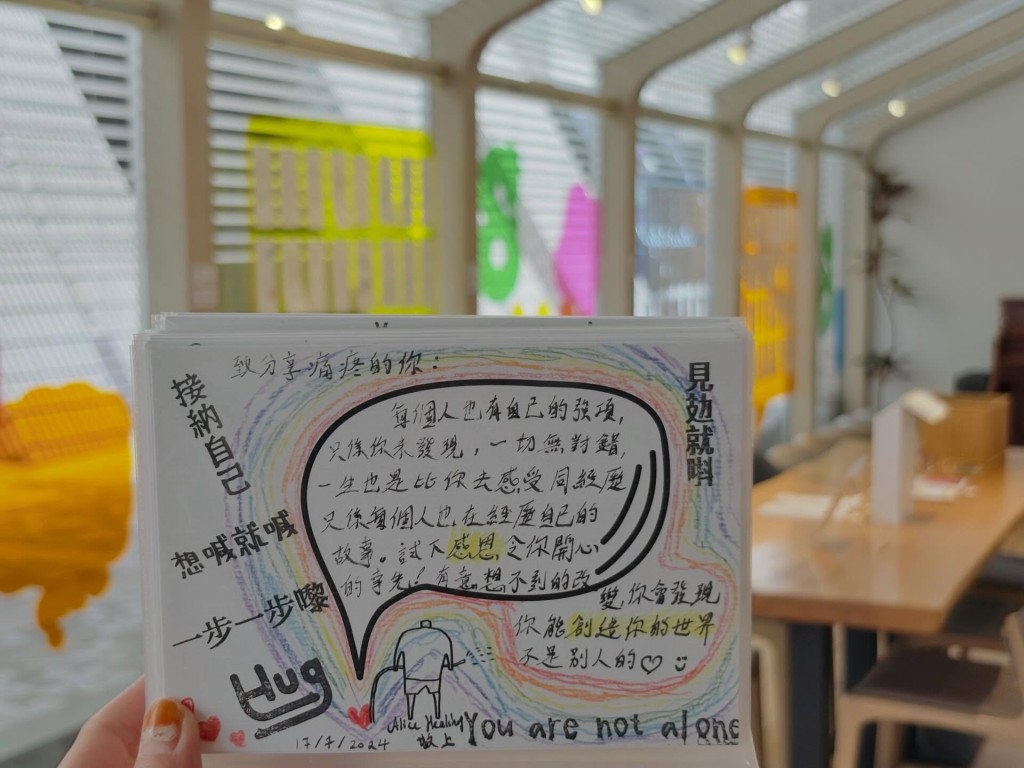 致分享痛疼的你：
接納自己
見攰就唞
每個人也有自己的強項，
只係你未發現，一切無對錯，
一生也是比你去感受同經歷
只係每個人也在經歷自己的
故事。試下感恩令你開心
的事先！有意想不到的改
變，你會發現
你能創造你的世界
不是別人的♡
想喊就喊
一步一步嚟
Hug
17/7/2024
Alice Healing
敬上
You are not alone